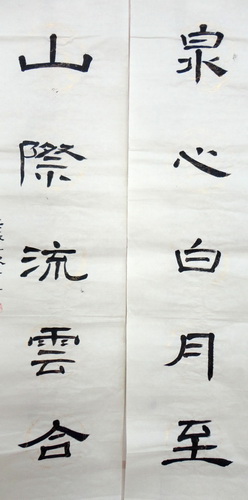 泉心白月至
山際流雲合